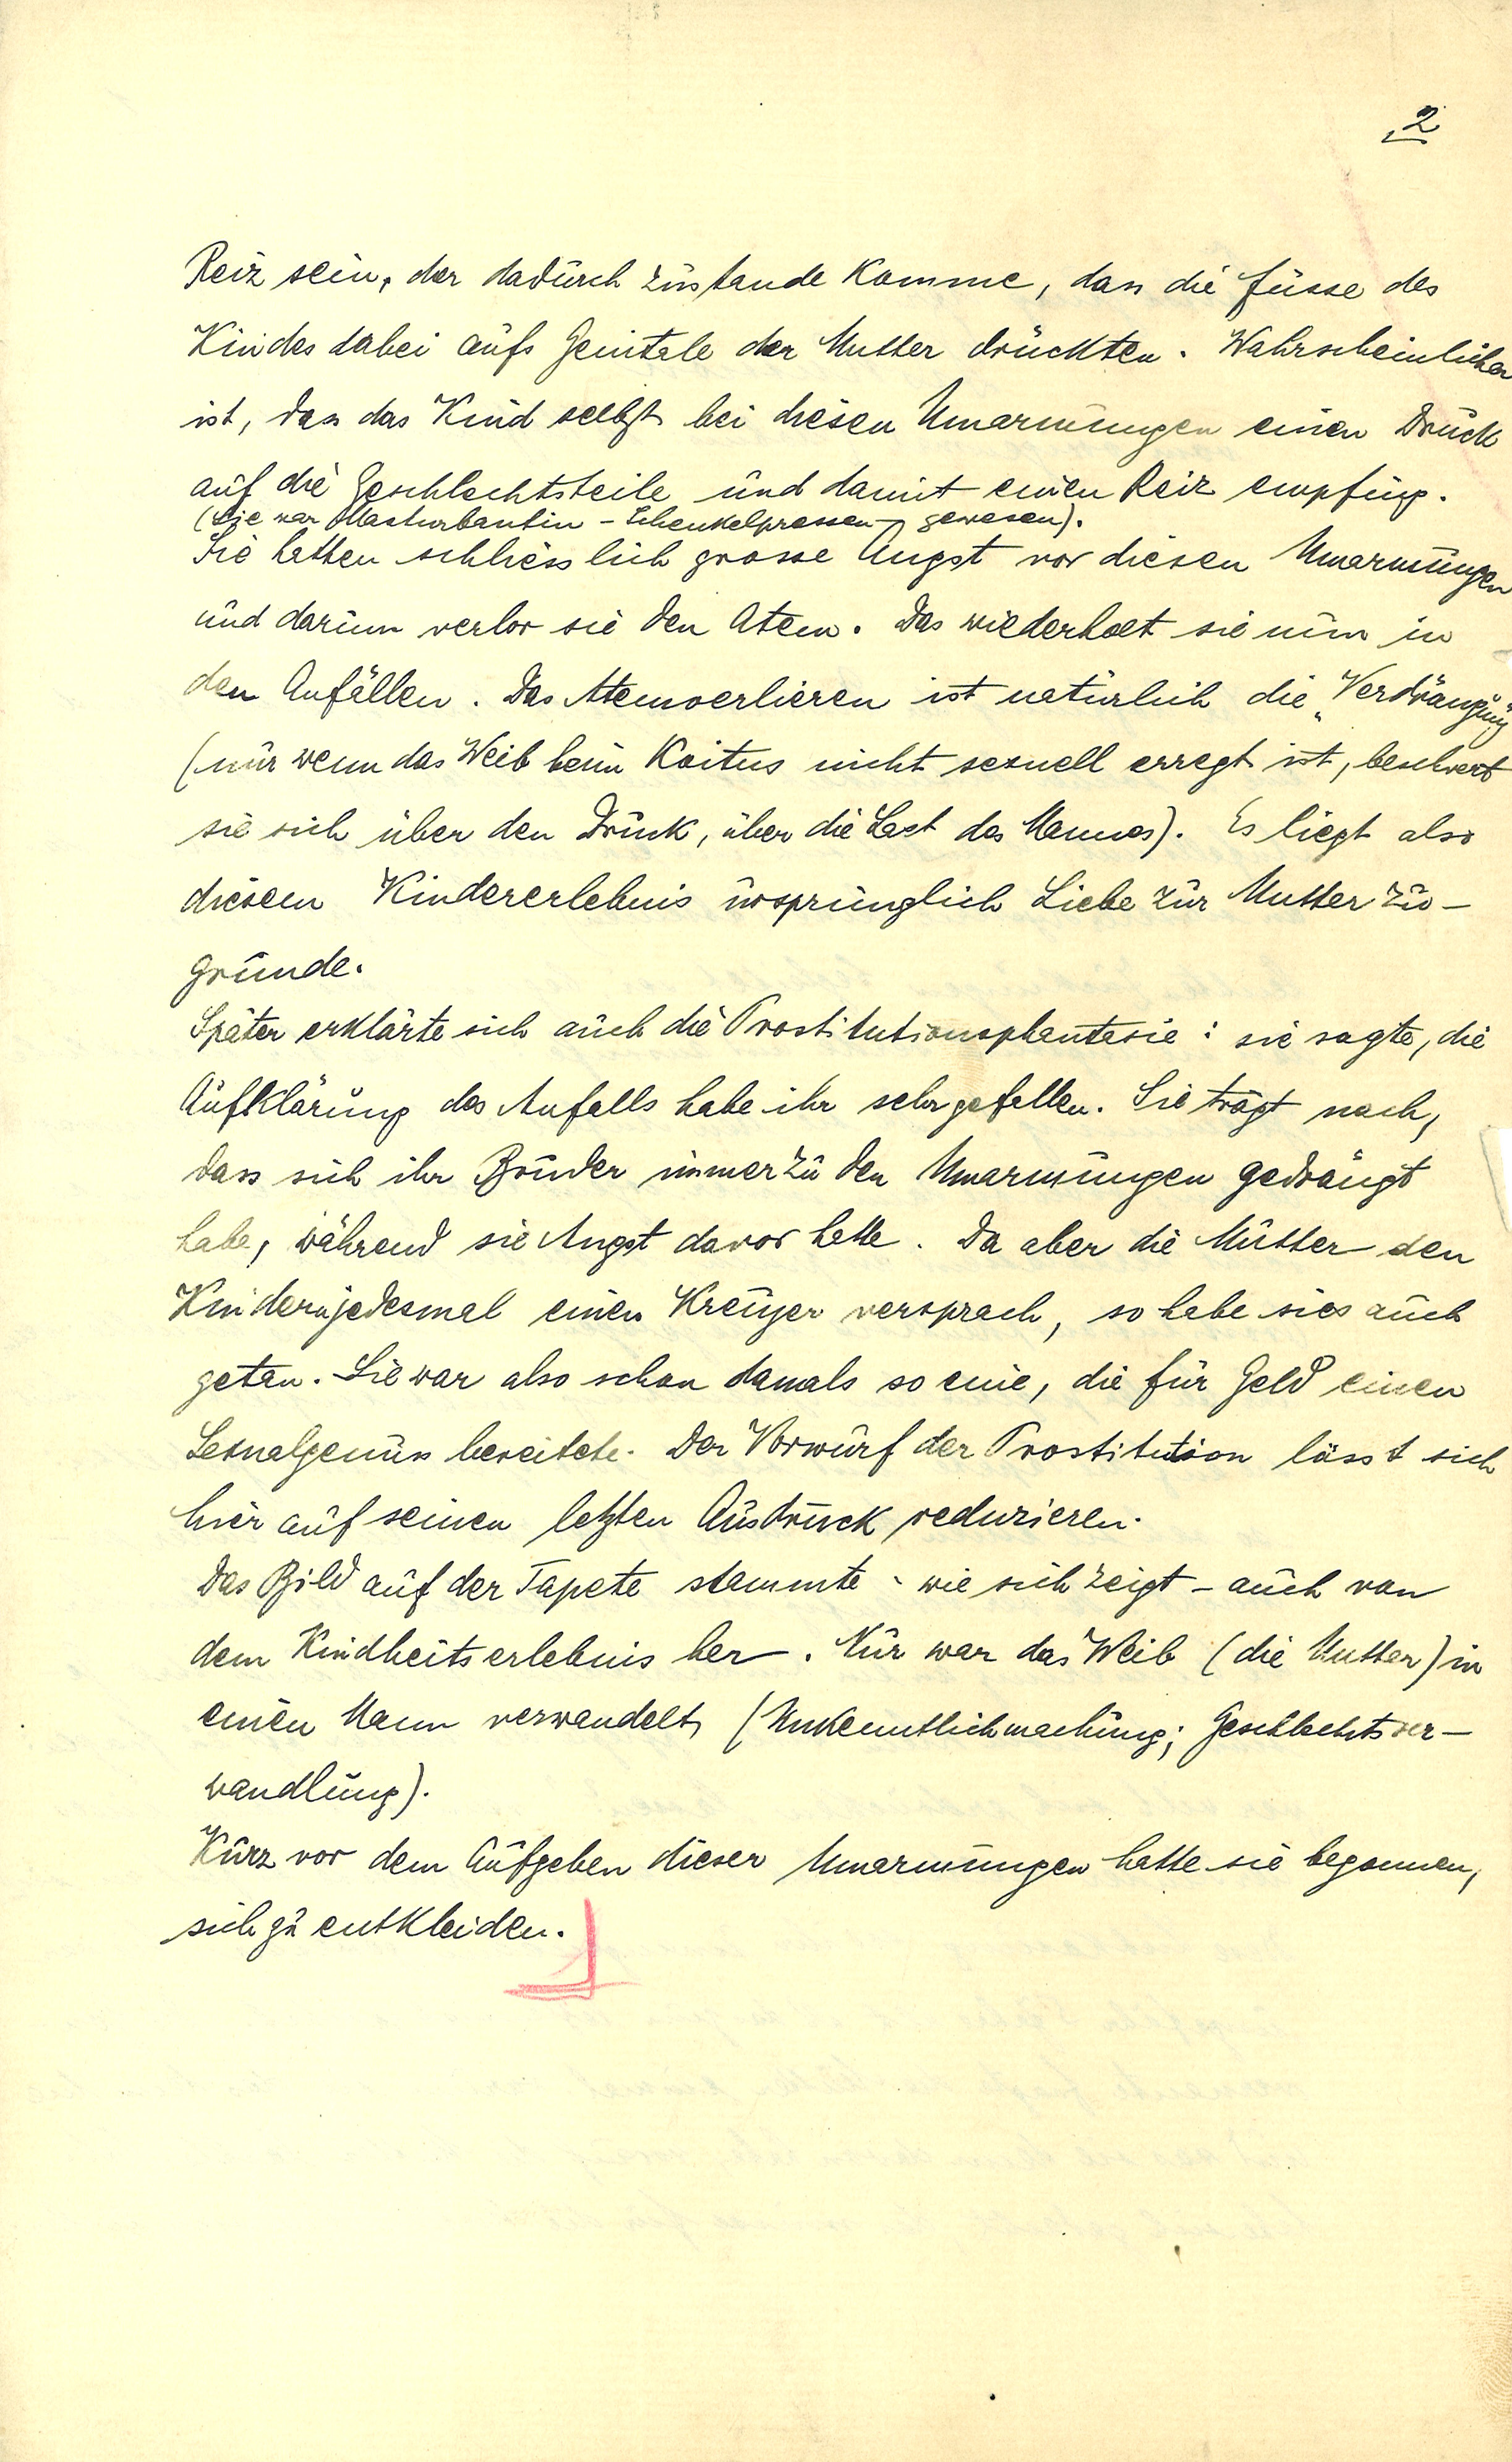 2
Reiz sein, der dadurch zustande komme, dass die Füsse des
Kindes dabei aufs Genitale der Mutter drückten. Wahrscheinlicher
ist, dass das Kind selbst bei diesen Umarmungen einen Druck
auf die Geschlechtsteile und damit einen Reiz empfing.
(Sie war Masturbantin - Schenkelpressen - gewesen).
Sie hatten schliesslich grosse Angst vor diesen Umarmungen
und darum verlor sie den Atem. Das wiederholt sie nun in
den Anfällen. Das Atemverlieren ist natürlich die „Verdrängung"
(nur wenn das Weib beim Koitus nicht sexuell erregt ist, beschwert
sie sich über den Druck, über die Last des Mannes). Es liegt also
diesem Kindererlebnis ursprünglich Liebe zur Mutter zu-
grunde.
Später erklärte sich auch die Prostitutionsphantasie: sie sagte, die
Aufklärung des Anfalls habe ihr sehr gefallen. Sie trägt nach,
dass sich ihr Bruder immer zu den Umarmungen gedrängt
habe, während sie Angst davor hatte. Da aber die Mutter den
Kindern jedesmal einen Kreuzer versprach, so habe sies auch
getan. Sie war also schon damals so eine, die für Geld einen
Sexualgenuss bereitete. Der Vorwurf der Prostitution lässt sich
hier auf seinen letzten Ausdruck reduzieren.
Das Bild auf der Tapete stammte - wie sich zeigt - auch von
dem Kindheitserlebnis her. Nur war das Weib (die Mutter) in
einen Mann verwandelt (Unkenntlichmachung; Geschlechtsver-
wandlung).
Kurz vor dem Aufgeben dieser Umarmungen hatte sie begonnen,
sich zu entkleiden.